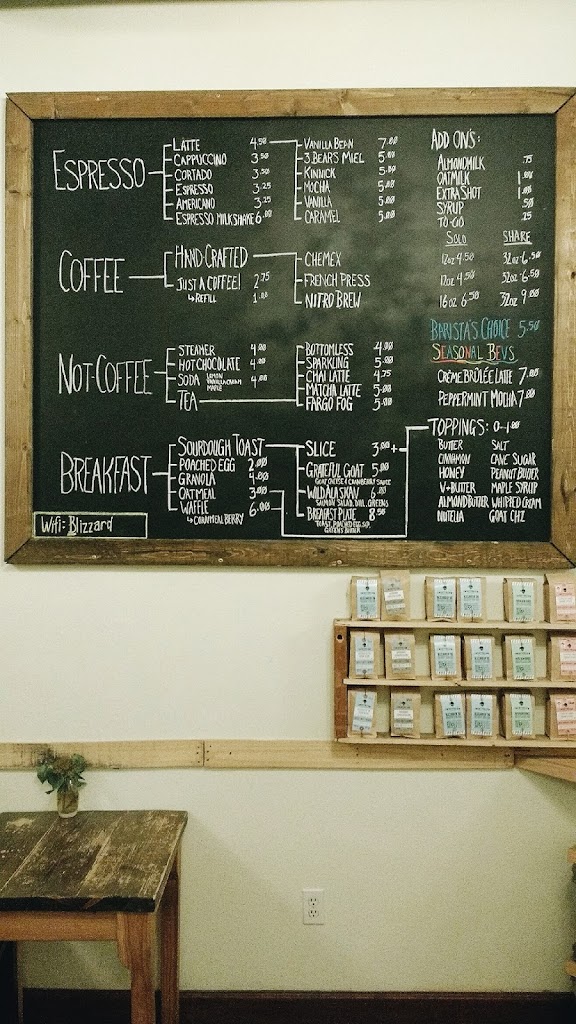 ESPRESSO
LATTE 4.50
CAPPUCCINO 3.50
CORTADO 3.50
ESPRESSO 3.25
AMERICANO 3.25
ESPRESSO MILKSHAKE 6.00
VANILLA BEAN 7.00
3 BEARS MIEL 5.00
KINNICK 5.00
MOCHA 5.00
VANILLA 5.00
CARAMEL 5.00
COFFEE
HAND-CRAFTED
JUST A COFFEE! 2.75
↳ REFILL 1.00
CHEMEX
FRENCH PRESS
NITRO BREW
NOT-COFFEE
STEAMER 4.00
HOT CHOCOLATE 4.00
SODA LEMON VANILLA CREAM MAPLE 4.00
TEA
BOTTOMLESS 4.00
SPARKLING 5.00
CHAI LATTE 4.75
MATCHA LATTE 5.00
FARGO FOG 5.00
BREAKFAST
SOURDOUGH TOAST
POACHED EGG 2.00
GRANOLA 4.00
OATMEAL 3.00
WAFFLE 6.00
↳ CORNMEAL BERRY
SLICE 3.00 +
GRATEFUL GOAT 5.00
GOAT CHEESE & CRANBERRY SAUCE
WILD ALASKAN 6.00
SALMON SALAD, DILL, GREENS
BREAKFAST PLATE 8.50
TOAST, POACHED EGG,
GREENS
ADD ON'S:
ALMONDMILK .75
OATMILK 1.00
EXTRA SHOT 1.00
SYRUP .50
TO-GO .25
SOLO SHARE
12oz 4.50 32oz 6.50
12oz 4.50 32oz 6.50
16oz 6.50 32oz 9.00
BARISTA'S CHOICE 5.50
SEASONAL BEVS
CRÈME BRÛLÉE LATTE 7.00
PEPPERMINT MOCHA 7.00
TOPPINGS: 0-1.00
BUTTER SALT
CINNAMON CANE SUGAR
HONEY PEANUT BUTTER
V-BUTTER MAPLE SYRUP
ALMOND BUTTER WHIPPED CREAM
NUTELLA GOAT CHZ
Wifi: Blizzard